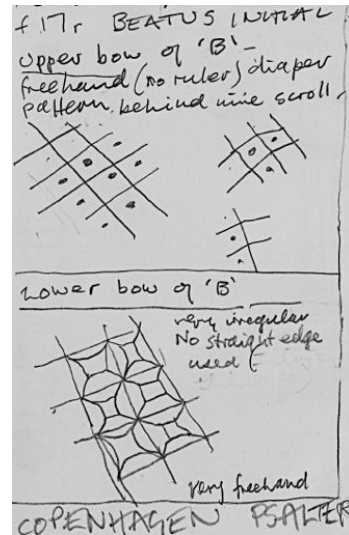 f 17r BEATUS INITIAL
Upper bow of 'B' –
freehand (no ruler) diaper
pattern behind vine scroll.
Lower bow of 'B'
very irregular
No straight edge
used
very freehand
COPENHAGEN PSALTER